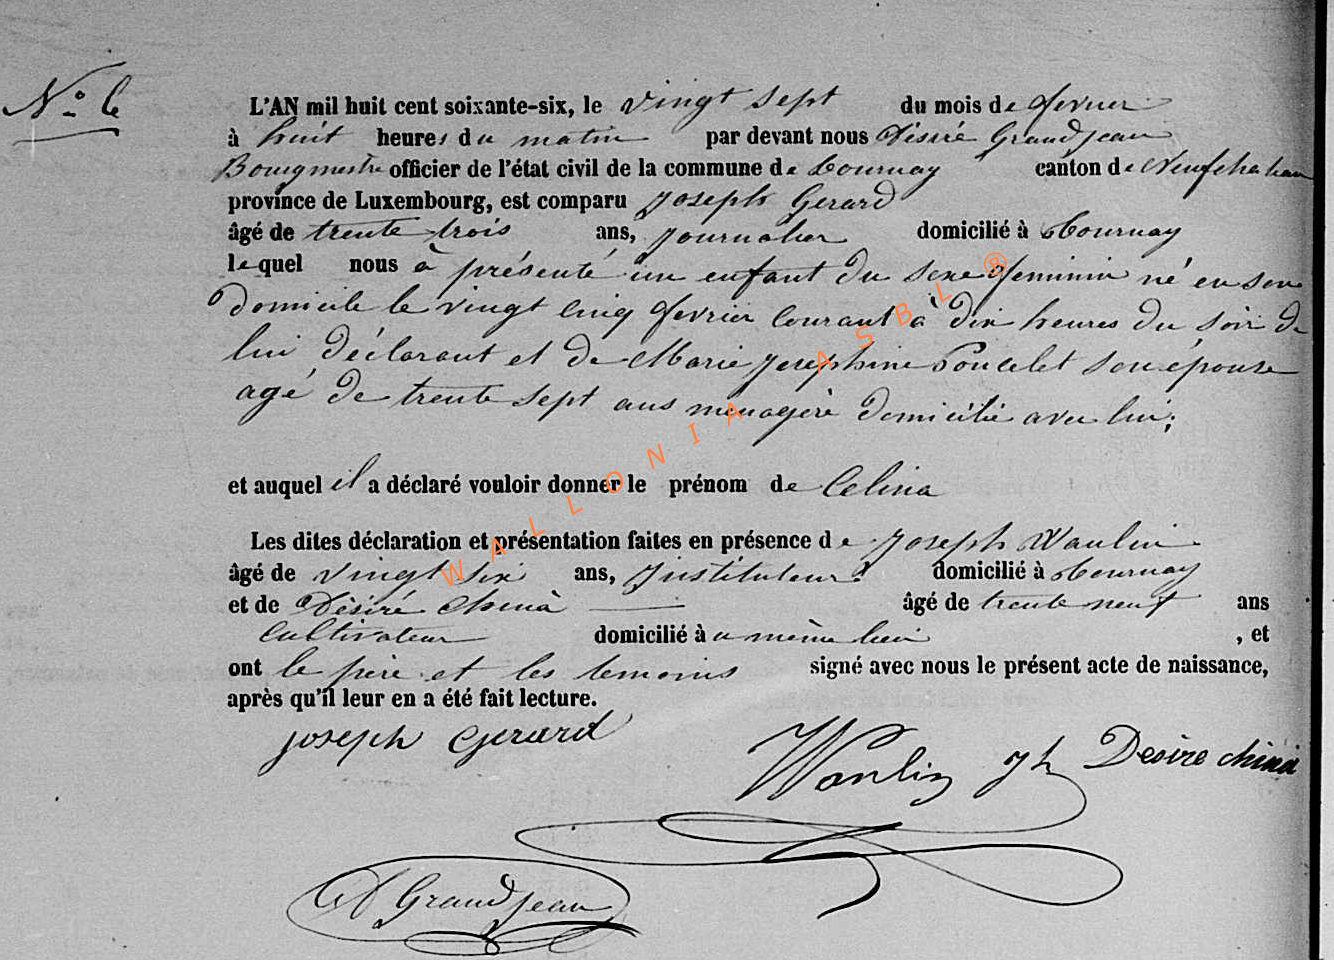 N° 6
L'AN mil huit cent soixante-six, le vingt sept du mois de fevrier
à huit heures du matin par devant nous Désiré Grandjean
Bourgmestre officier de l'état civil de la commune de Tournay canton de Neufchateau
province de Luxembourg, est comparu Joseph Gerard
âgé de trente trois ans, journalier domicilié à Tournay
lequel nous à présenté un enfant du sexe feminin né en son
domicile le vingt cinq fevrier courant à dix heures du soir de
lui déclarant et de Marie Josephine Poncelet son épouse
agé de trente sept ans menagère domicilié avec lui;
et auquel il a déclaré vouloir donner le prénom de Celina
Les dites déclaration et présentation faites en présence de Joseph Waulin
âgé de vingt six ans, Instituteur domicilié à Tournay
et de Désiré China âgé de trente neuf ans
Cultivateur domicilié à u même lieu , et
ont le père et les temoins signé avec nous le présent acte de naissance,
après qu'il leur en a été fait lecture.
Joseph Gerard
Waulin Jh Desire china
D Grandjean
WALLONIA ASBL ®